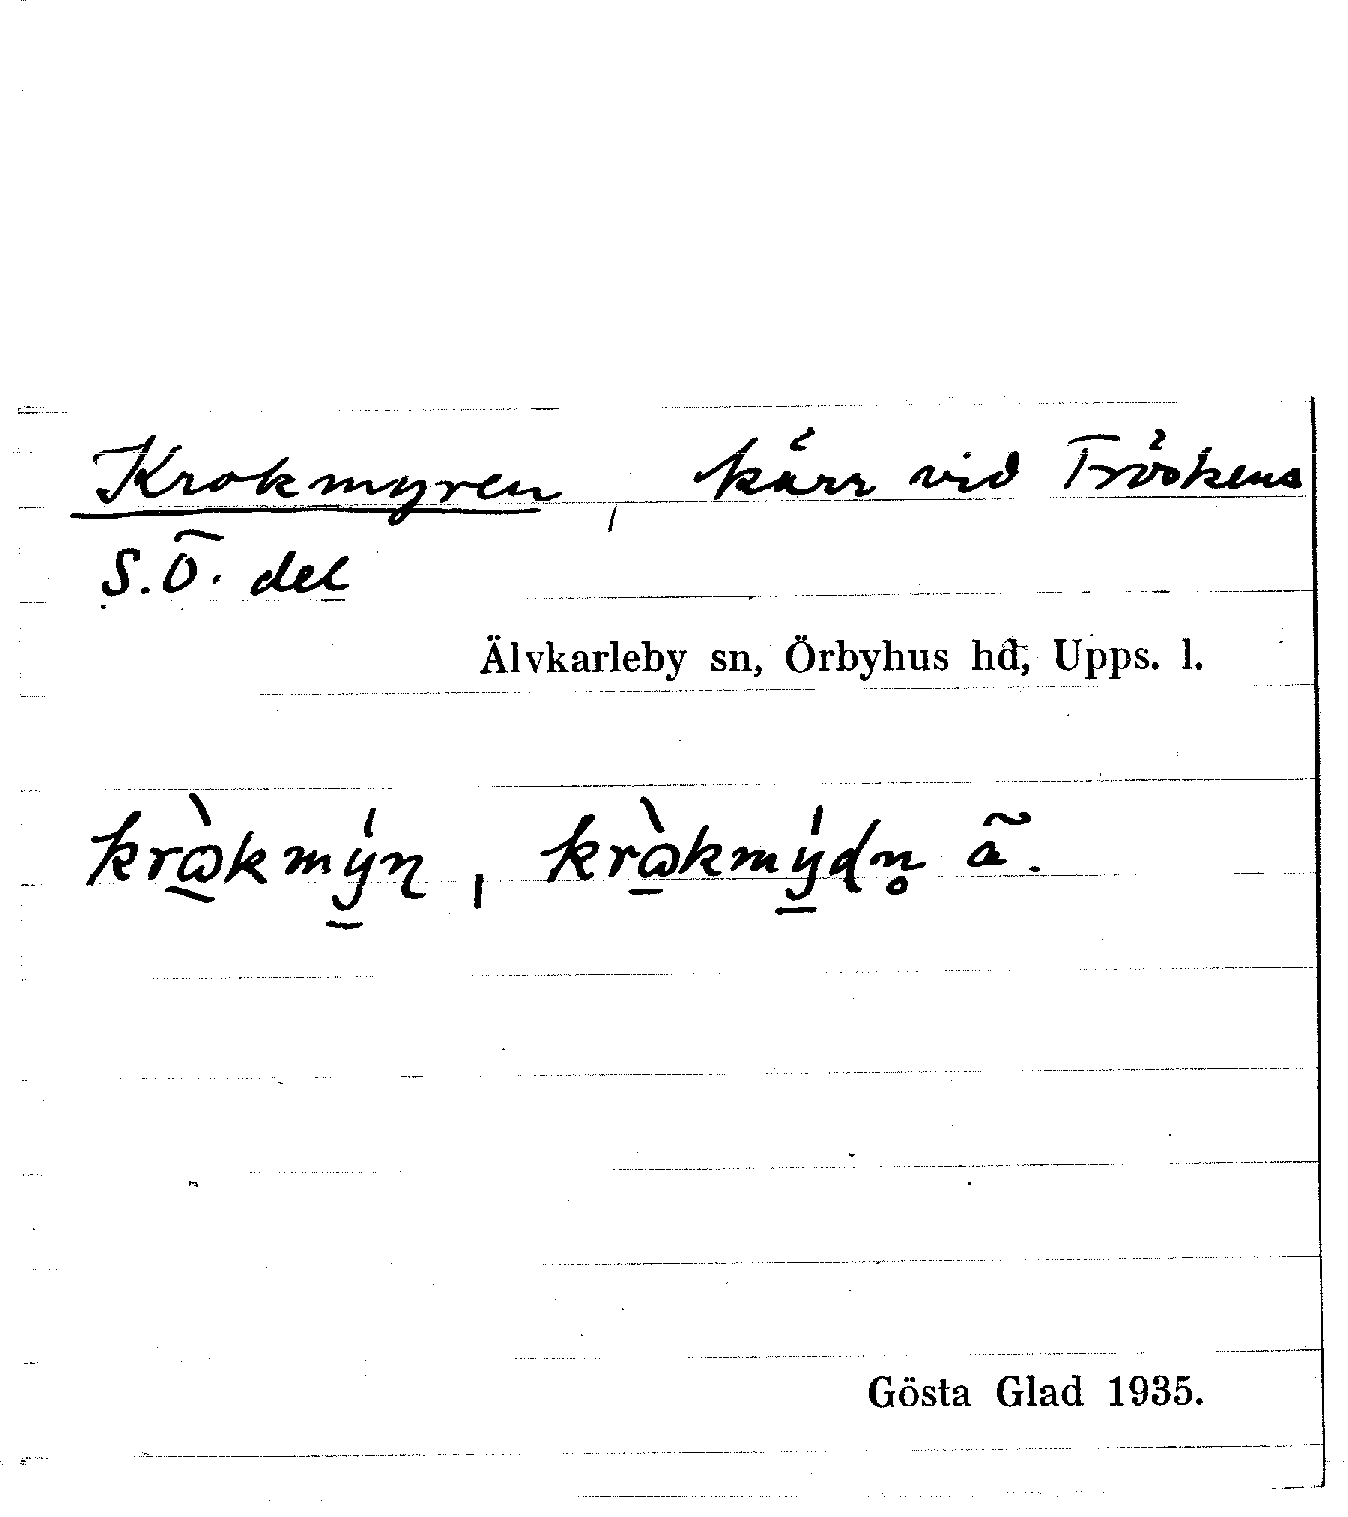 Krokmyren, kärr vid Tröskens
S.Ö. del
Älvkarleby sn, Örbyhus hd, Upps. l.
Gösta Glad 1935.